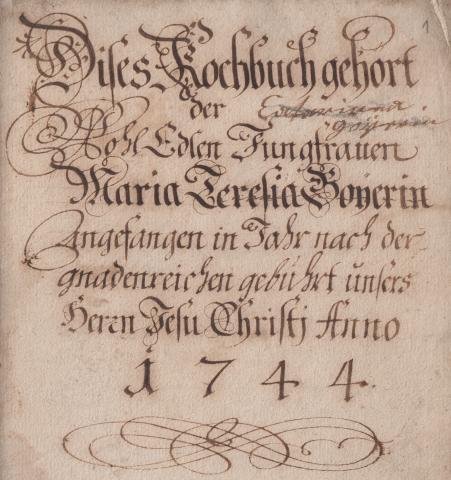 1
Dises Kochbuch gehört
der Catarinna
goÿerin
Wohl Edlen Jungfrauen
Maria Teresia Goÿerin
angefangen in Jahr nach der
gnadenreichen gebührt unsers
Herrn Jesu Christj Anno
1744.